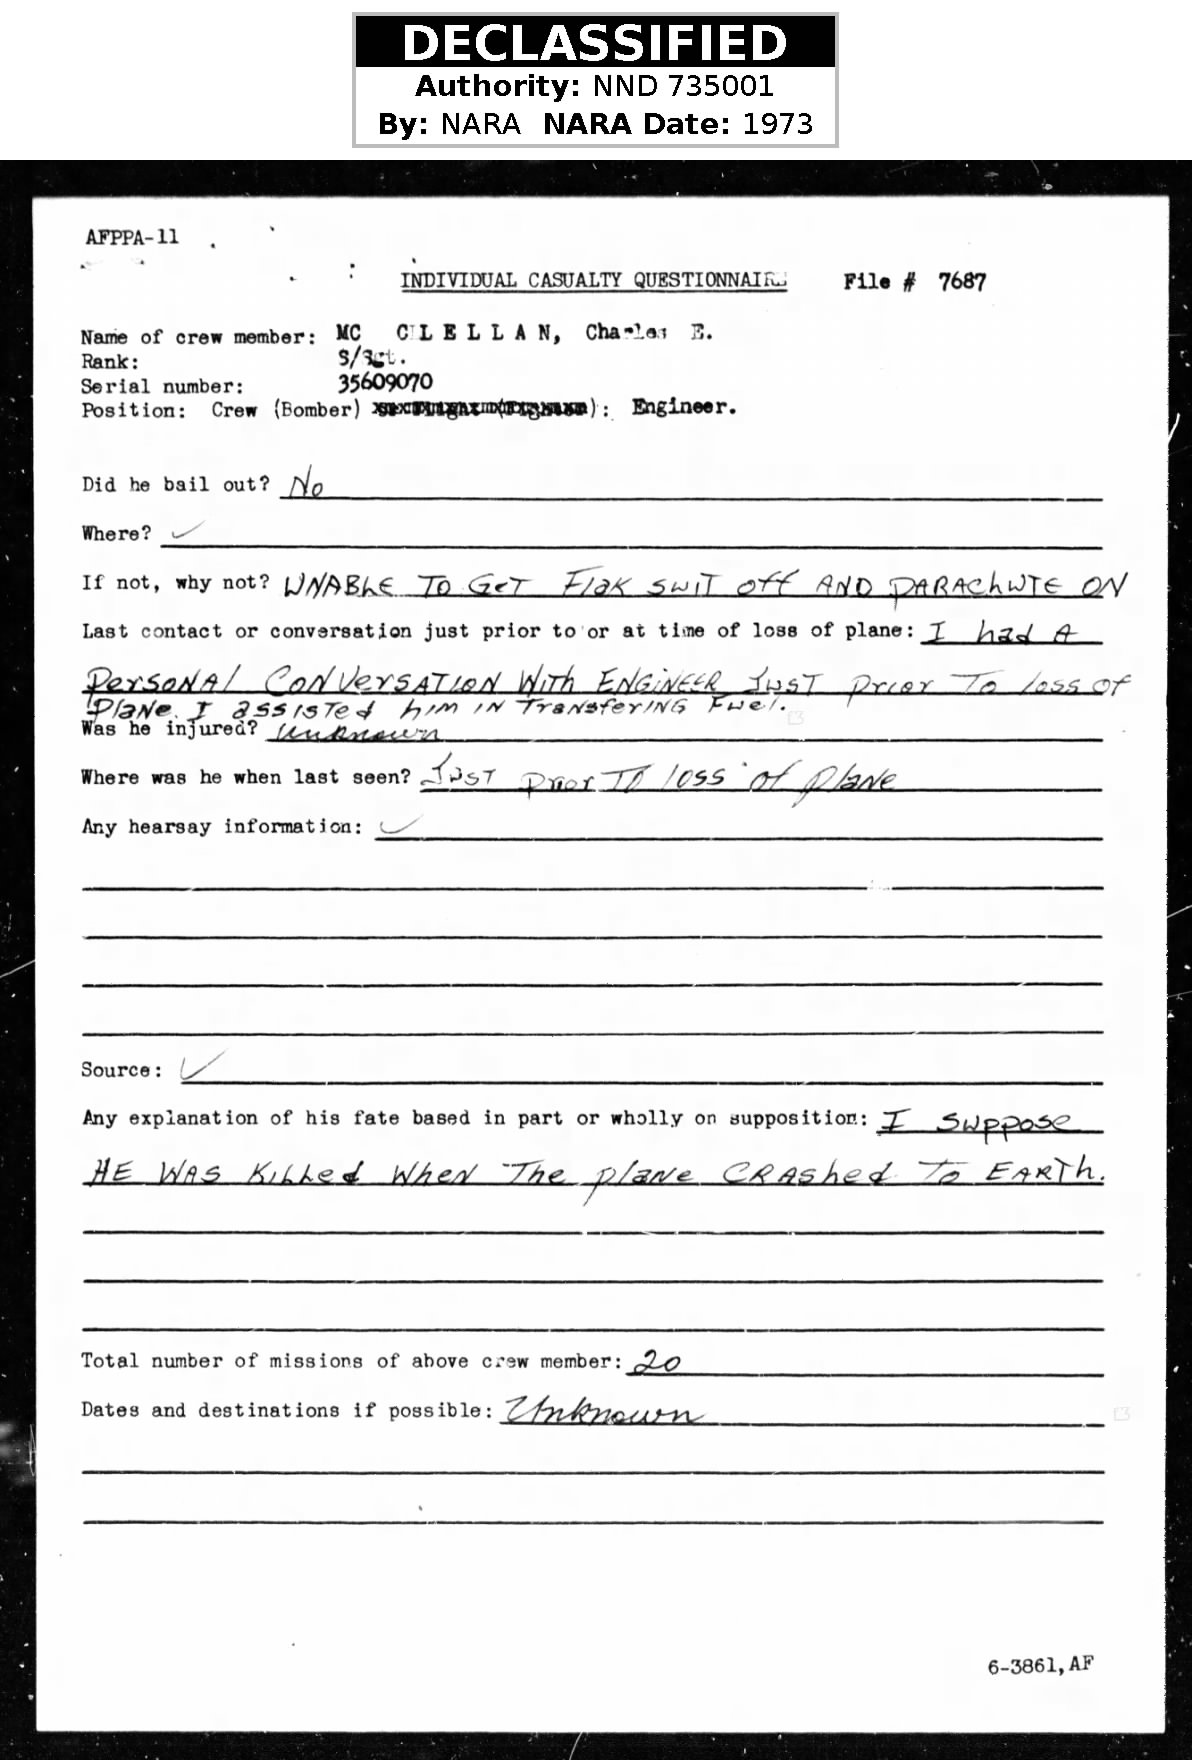 DECLASSIFIED
Authority: NND 735001
By: NARA NARA Date: 1973
AFPPA-11
INDIVIDUAL CASUALTY QUESTIONNAIRE File # 7687
Name of crew member: MC CLELLAN, Charles E.
Rank: S/Sgt.
Serial number: 35609070
Position: Crew (Bomber) ): Engineer.
Did he bail out? No
Where? ✓
If not, why not? UNABLE TO GET Flak suit off AND PARAChUTE ON
Last contact or conversation just prior to or at time of loss of plane: I had A
PerSONAl CONVerSATION With ENGINEER JUST prior To loss of
PlaNe. I assisted him IN TransferING Fuel.
Was he injured? Unknown
Where was he when last seen? JUST prior TO loss of plaNe
Any hearsay information: ✓
Source: ✓
Any explanation of his fate based in part or wholly on supposition: I suppose
HE WAS Killed When The plaNe CRAshed To EARTh.
Total number of missions of above crew member: 20
Dates and destinations if possible: Unknown
6-3861,AF